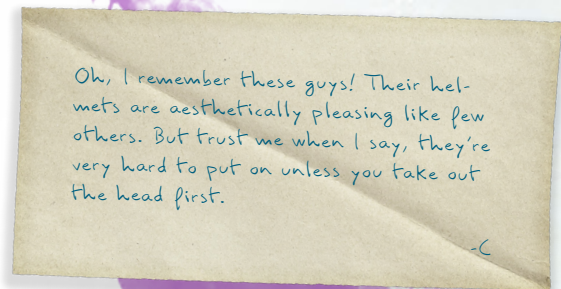 Oh, I remember these guys! Their hel-
mets are aesthetically pleasing like few
others. But trust me when I say, they're
very hard to put on unless you take out
the head first.
-C